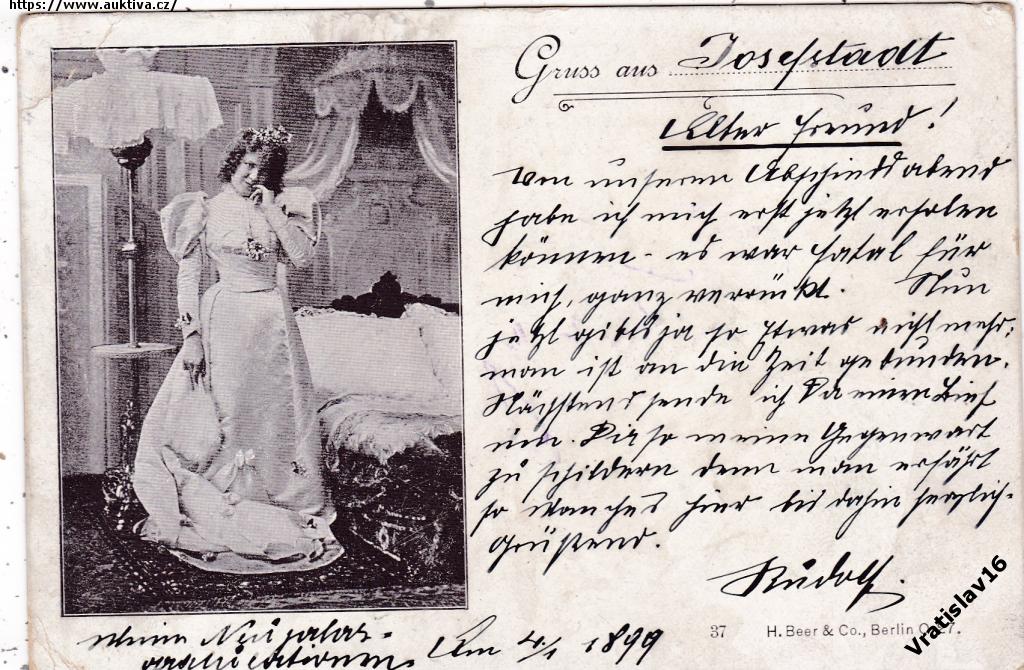 https://www.auktiva.cz/
Gruss aus Josefstadt
Alter Freund!
Von unserem Abschiedsabend
habe ich mich erst jetzt erholen
können - es war fatal für
mich, ganz verrückt. Nun
jetzt gibts ja so Etwas nicht mehr;
man ist an die Zeit gebunden.
Nächstens sende ich Da einen Brief
um Dir so meine Gegenwart
zu schildern denn man erfährt
so manches hier bis dahin herzlich-
Grüßend.
Rudolf.
Meine Neujahrs-
gratulationen. Am 4/1 1899
37 H. Beer & Co., Berlin O. 27.
Vratislav16